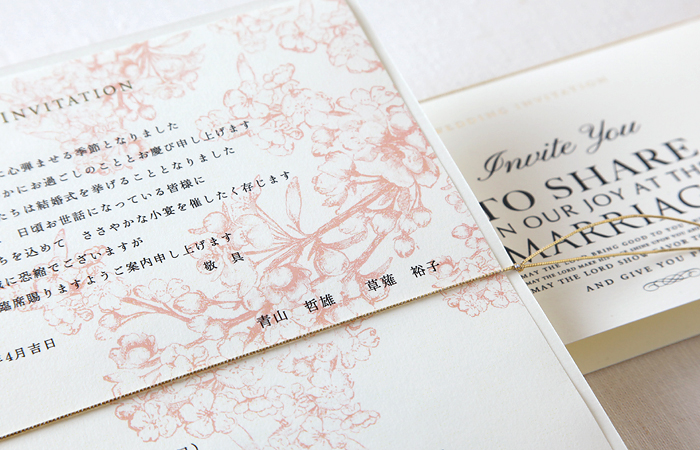 INVITATION
に心弾ませる季節となりました
かにお過ごしのこととお慶び申し上げます
たちは結婚式を挙げることとなりました
日頃お世話になっている皆様に
ちを込めて ささやかな小宴を催したく存じます
に恐縮でございますが
臨席賜りますようご案内申し上げます
敬具
青山 哲雄 草薙 裕子
4月吉日
WEDDING INVITATION
Invite You
TO SHARE
IN OUR JOY AT TH
MARRIAG
MAY THE LORD BRING GOOD TO YOU
MAY THE LORD SHOW
AND GIVE YOU P